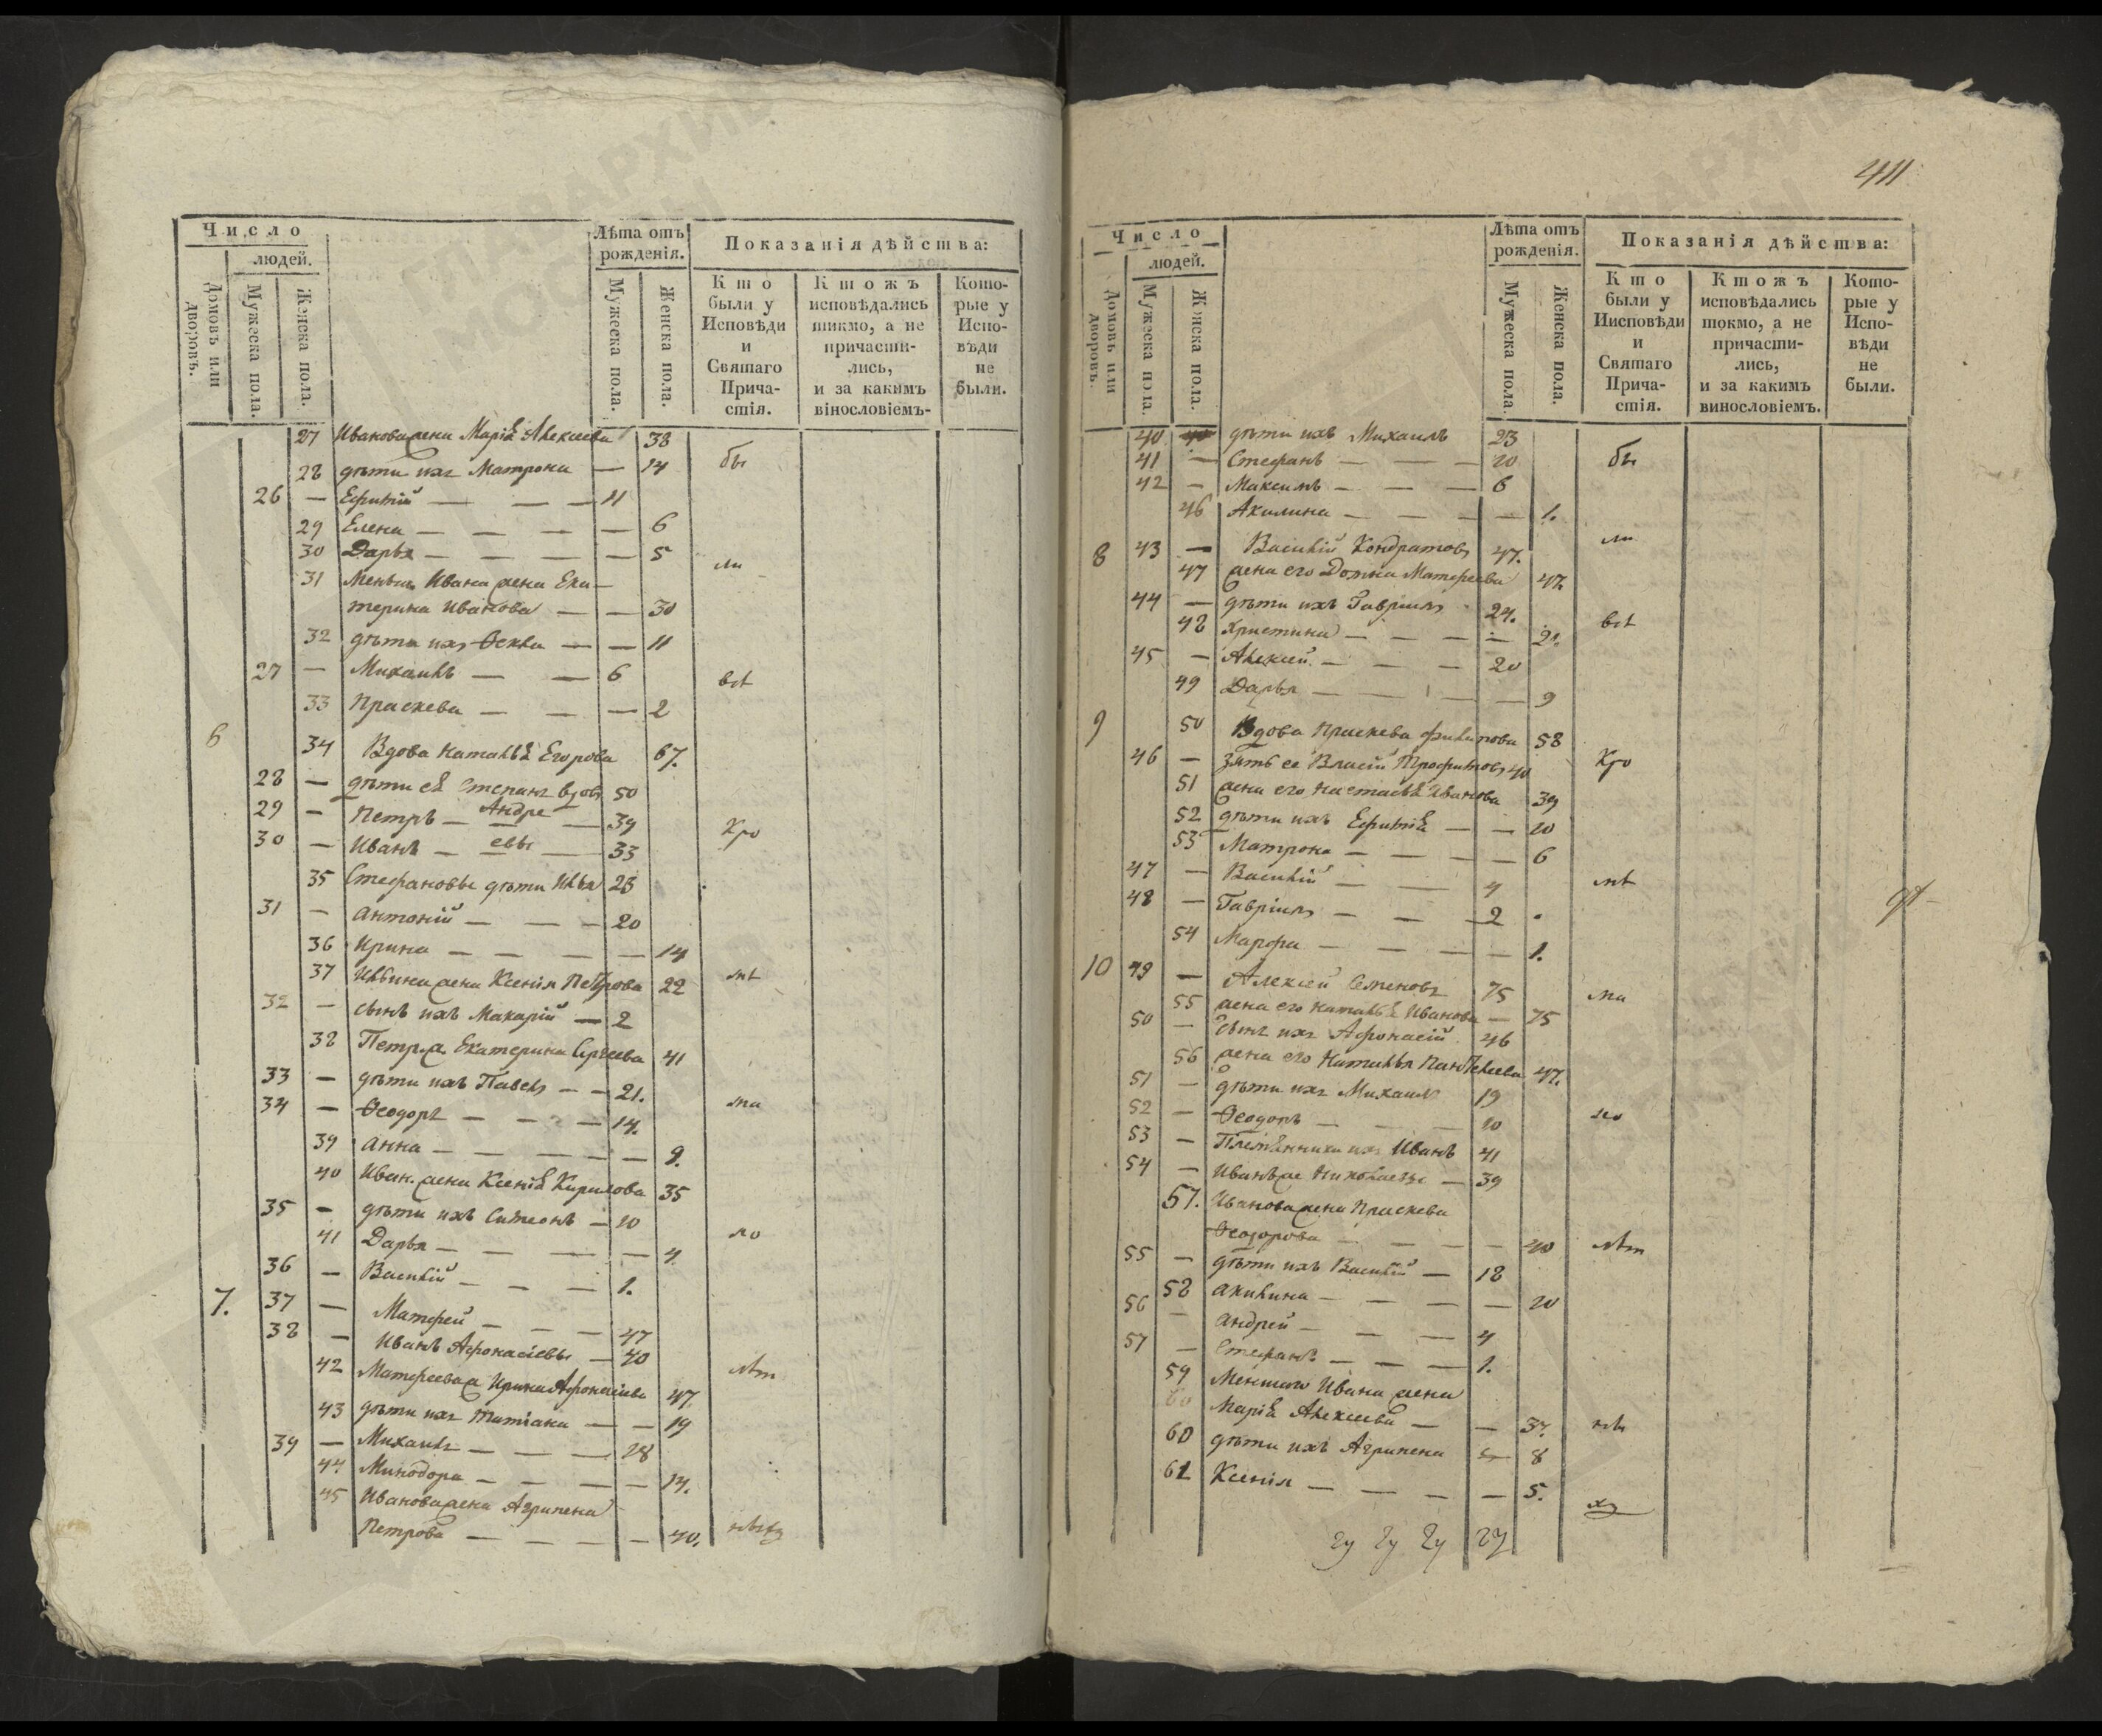 Число
людей.
Домовъ или дворовъ.
Мужеска пола.
Женска пола.
Лѣта отъ рожденія.
Мужеска пола.
Женска пола.
Показанія дѣйства:
Кто были у Исповѣди и Святаго Причастія.
Ктожъ исповѣдались тикмо, а не причастились, и за какимъ вінословіемъ-
Которые у Исповѣди не были.
27 Иванова жена Марія Алексеева 38
28 дѣти ихъ Матрона — 14 бы
26 — Ефимій — — 11
29 Елена — — — — 6
30 Дарья — — — — 5 ли
31 Меньш. Ивана жена Ека-
терина Иванова — — 30
32 дѣти ихъ Ѳекла — — 11
27 — Михаилъ — — 6 всѣ
33 Праскева — — — 2
6 34 Вдова Наталья Егорова 67.
28 — дѣти ея Степанъ вдовъ 50
29 — Петръ — Андре — 39 Кро
30 — Иванъ — евы — 33
35 Стефановы дѣти Илья 23
31 — Антоній — — — 20
36 Ирина — — — — 14
37 Ильина жена Ксенія Петрова 22 мѣ
32 — сынъ ихъ Макарій — 2
38 Петр. ж. Екатерина Сергеева 41
33 — дѣти ихъ Павелъ — — 21.
34 — Ѳеодоръ — — — 14. ма
39 Анна — — — — — 9.
40 Иван. жена Ксенія Кирилова 35
35 — дѣти ихъ Симеонъ — 10
41 Дарья — — — — 4. ло
36 — Василій — — — 1.
7. 37 — Матфей — — — 47
38 — Иванъ Афонасіевы — 40
42 Матфеева ж Ирина Афонасіева 47. лѣт
43 дѣти ихъ Татіана — — 19
39 — Михаилъ — — — 28
44 Минодора — — — — 14.
45 Иванова жена Агрипена
Петрова — — — — 40.
411
Число
людей.
Домовъ или дворовъ.
Мужеска пола.
Женска пола.
Лѣта отъ рожденія.
Мужеска пола.
Женска пола.
Показанія дѣйства:
Кто были у Иисповѣди и Святаго Причастія.
Ктожъ исповѣдались токмо, а не причастились, и за какимъ винословіемъ.
Которые у Исповѣди не были.
40 дѣти ихъ Михаилъ 23
41 — Стефанъ — — — 20 бы
42 — Максимъ — — — 6
46 Акилина — — — — 1.
8 43 — Василій Кондратовъ 47. ли
47 жена его Домна Матфеева 47.
44 — дѣти ихъ Гавріилъ 24.
48 Христина — — — — 21. всѣ
45 — Алексей — — — 20
49 Дарья — — — — 9
9 50 Вдова Праскева Филипова 58
46 — Зять ее Власій Трофимовъ 40 Кро
51 жена его Настасья Иванова 39
52 дѣти ихъ Ефимія — — 10
53 Матрона — — — — 6
47 — Василій — — 4 мѣ
48 — Гавріилъ — — 2
54 Марфа — — — — 1.
10 49 — Алексей Семеновъ 75 ма
55 жена его Наталья Иванова — 75
50 — Сынъ ихъ Афонасій 46
56 жена его Наталья Пантелеева 47.
51 — дѣти ихъ Михаилъ 19
52 — Ѳеодоръ — — — 10 ло
53 — Племянники ихъ Иванъ 41
54 — Иванъ же Николаевы — 39
57. Иванова жена Праскева
Ѳеодорова — — — — 40 лѣт
55 — дѣти ихъ Василій — 18
58 Акилина — — — — 20
56 — Андрей — — — 4
57 — Стефанъ — — — 1.
59 Меншаго Ивана жена
Марія Алексеева — — 37.
60 дѣти ихъ Агрипена 8
61 Ксенія — — — — 5.